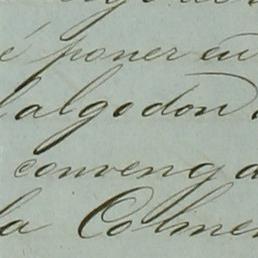 é poner en
algodon
convenga
la Colmen